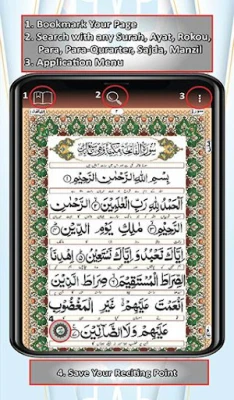 1. Bookmark Your Page
2. Search with any Surah, Ayat, Rokou,
Para, Para-Qurarter, Sajda, Manzil
3. Application Menu
1
2
3
بِسْمِ اللّٰهِ الرَّحْمٰنِ الرَّحِيْمِ
اَلْحَمْدُ لِلّٰهِ رَبِّ الْعٰلَمِيْنَ الرَّحْمٰنِ
الرَّحِيْمِ مٰلِكِ يَوْمِ الدِّيْنِ
اِيَّاكَ نَعْبُدُ وَاِيَّاكَ نَسْتَعِيْنُ اِهْدِنَا
الصِّرَاطَ الْمُسْتَقِيْمَ صِرَاطَ الَّذِيْنَ
اَنْعَمْتَ عَلَيْهِمْ غَيْرِ الْمَغْضُوْبِ
4
عَلَيْهِمْ وَلَا الضَّآلِّيْنَ
4. Save Your Reciting Point